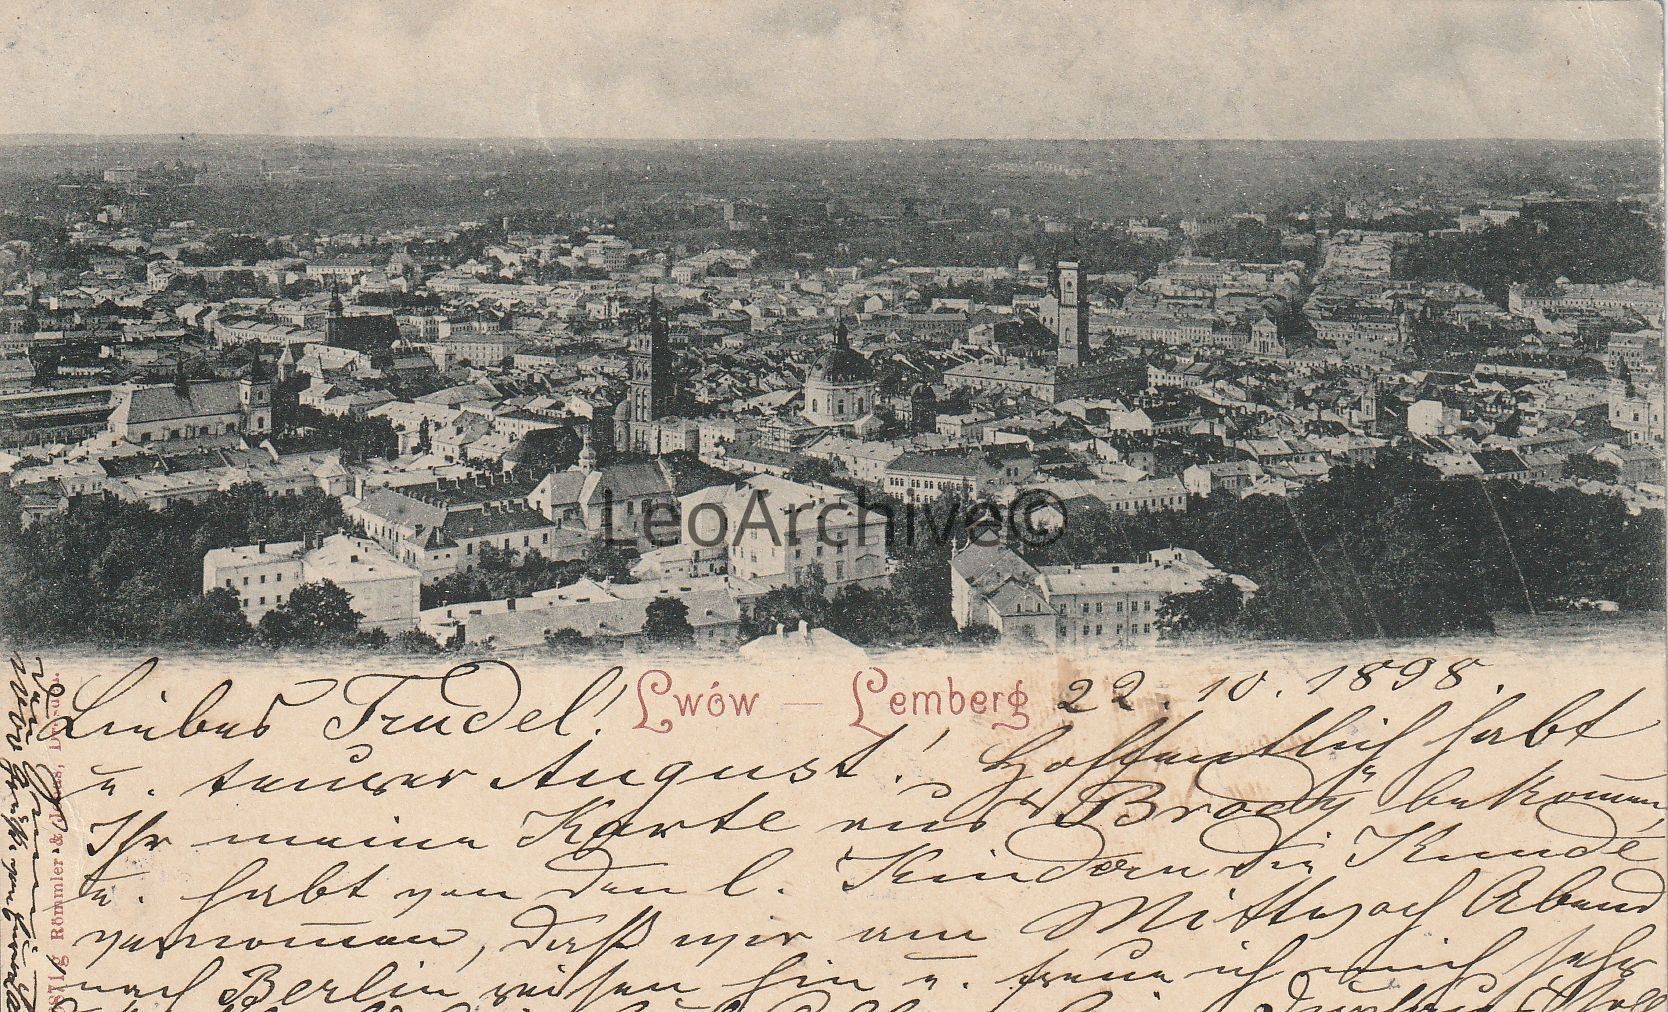 LeoArchive©
Lwów — Lemberg
22. 10. 1898.
Liebes Trudel!
u. teurer August! Hoffentlich habt
Ihr meine Karte aus Brody bekom̅en,
u. habt von den l. Kindern die Kunde
vernom̅en, daß wir am Mittwoch Abend
nach Berlin reisen u. freue ich mich sehr
Römmler & Jonas, Dresden.